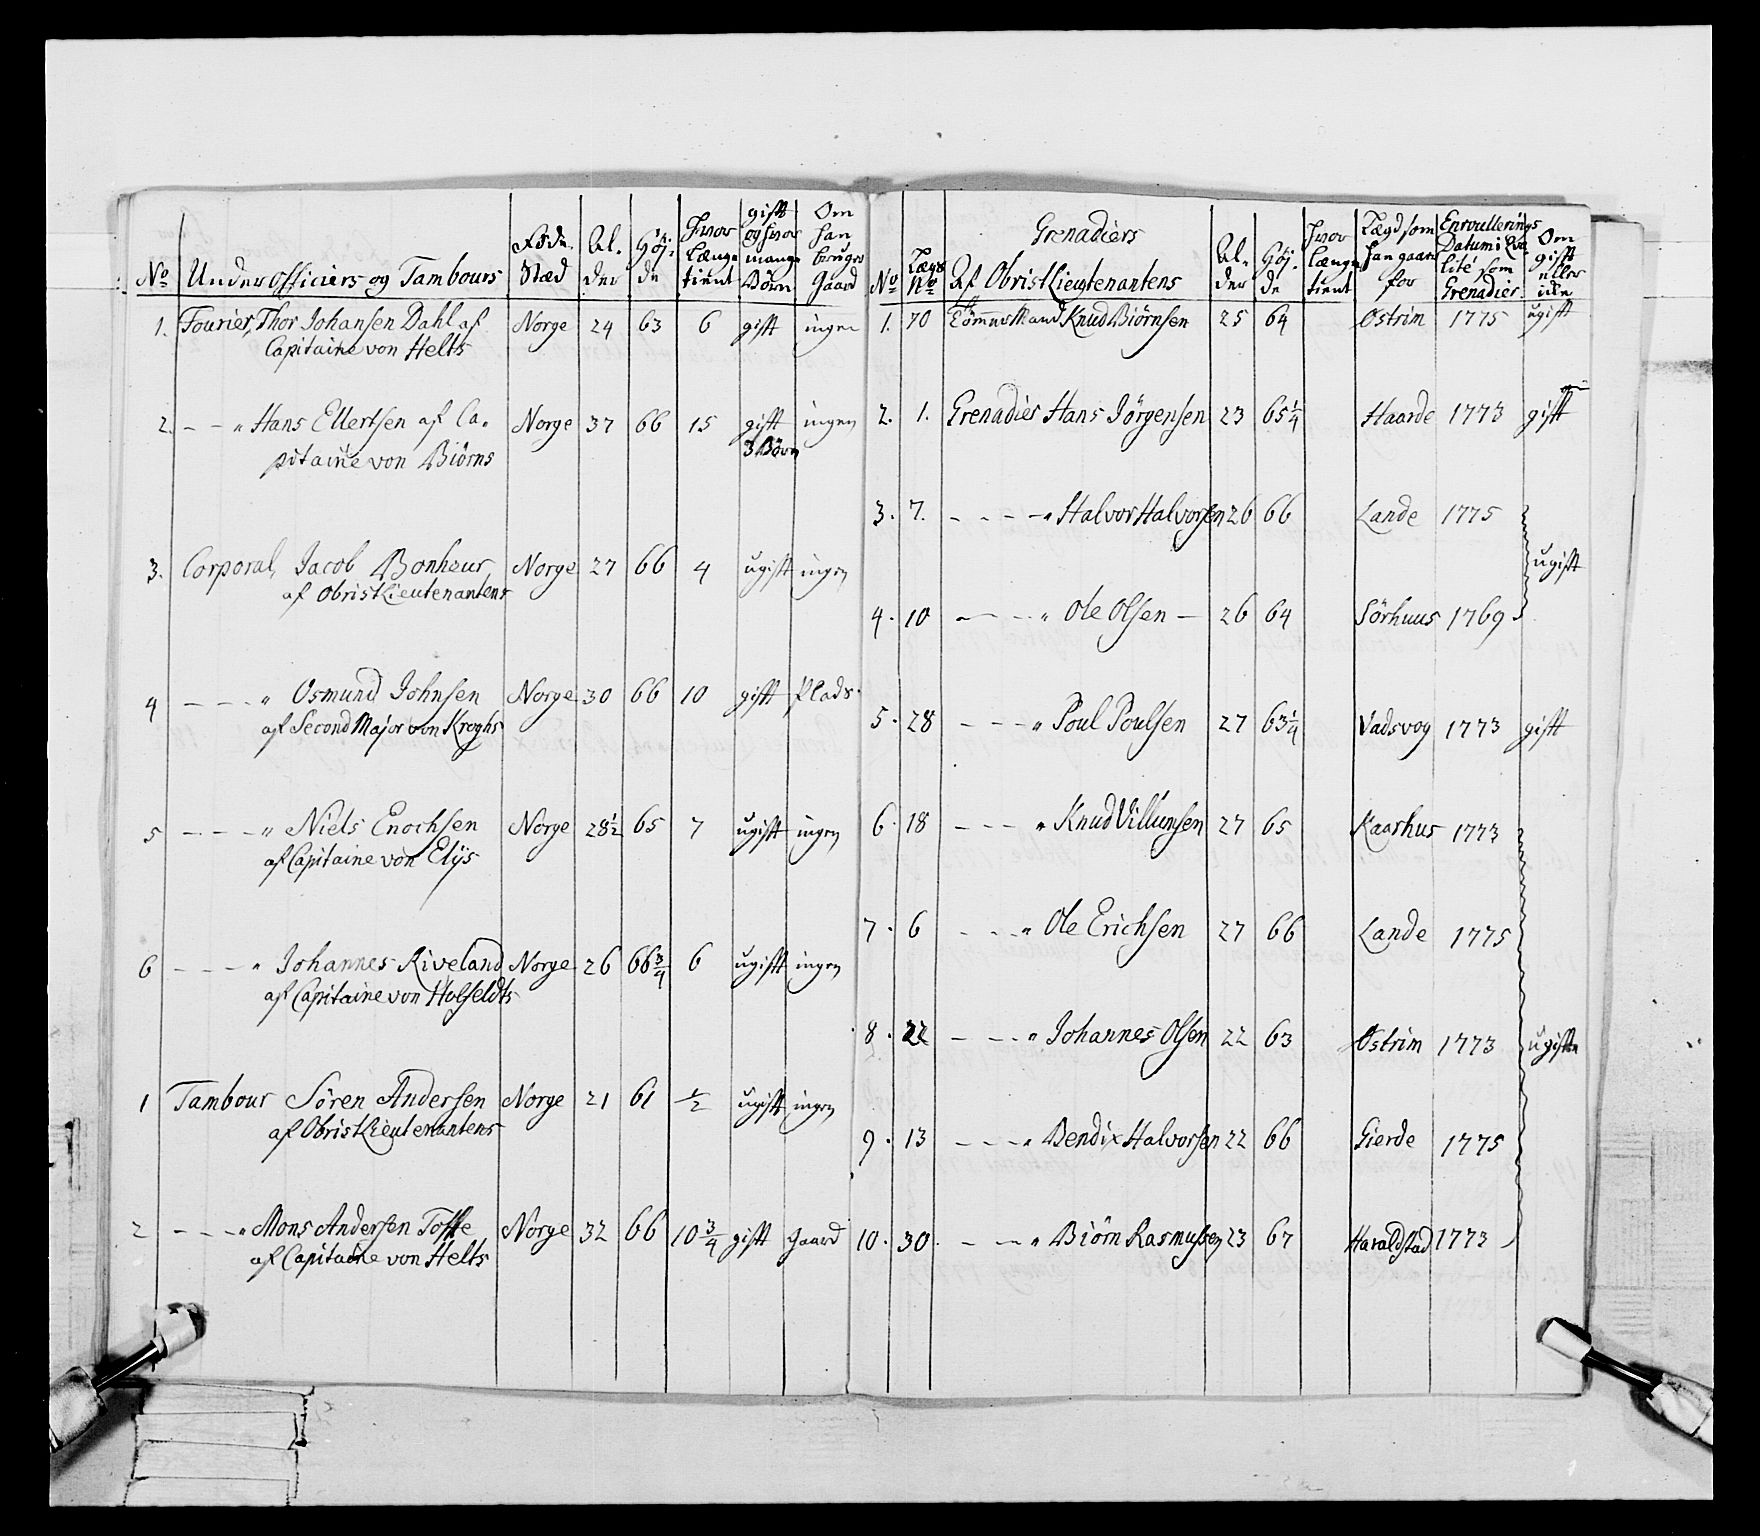 No | UnderOfficiers og Tambours | Føde Stæd | Al- der | Høj- de | Hvor Længe tient | gift og hvor mange Børn | Om han bruger Gaard
1. | Fourier, Thor Johansen Dahl af | Norge | 24 | 63 | 6 | gift | ingen
Capitaine von Helts
2. | — — " Hans Ellertsen af Ca- | Norge | 37 | 66 | 15 | gift | ingen
pitaine von Biörns | 3 Börn
3. | Corporal, Jacob Bonheur | Norge | 27 | 66 | 4 | ugift | ingen
af ObristLieutenantens
4 | — — — " Osmund Johnsen | Norge | 30 | 66 | 10 | gift | Plads
af Second Major von Kroghs
5 | — — — " Niels Enochsen | Norge | 28½ | 65 | 7 | ugift | ingen
af Capitaine von Elÿs
6 | — — — " Johannes Riveland | Norge | 26 | 66¾ | 6 | ugift | ingen
af Capitaine von Holfeldts
1 | Tambour Sören Andersen | Norge | 21 | 61 | ½ | ugift | ingen
af ObristLieutenantens
2 | — — — " Mons Andersen | Norge | 32 | 66 | 10¾ | gift | Gaard
af Capitaine von Helts
Grenadiers
No | Lægs No | Af ObristLieutenantens | Al- der | Høj- de | Hvor Længe tient | Lægd som han gaar for | Enroullerings Datum i Qvalité som Grenadier | Om gift eller ikke
1. | 70 | Knud Biörnsen | 25 | 64 | Ostrim | 1775 | ugift
2. | 1. | Grenadier Hans Jörgensen | 23 | 65¼ | Haarde | 1773 | gift
3. | 7. | — — — " Halvor Halvorsen | 26 | 66 | Lande | 1775
ugift
4. | 10 | — — — " Ole Olsen — | 26 | 64 | Sörhuus | 1769
5. | 28 | — — — " Poul Poulsen | 27 | 63¼ | Vadsvog | 1773 | gift
6. | 18 | — — — " Knud Villumsen | 27 | 65 | Kaarhus | 1773
7. | 6 | — — — " Ole Erichsen | 27 | 66 | Lande | 1775
8. | 22 | — — — " Johannes Olsen | 22 | 63 | Ostrim | 1773 | ugifte
9. | 13 | — — — " Bendix Halvorsen | 22 | 66 | Gierde | 1775
10. | 30. | — — " Biörn Rasmussen | 23 | 67 | Haraldstad | 1773